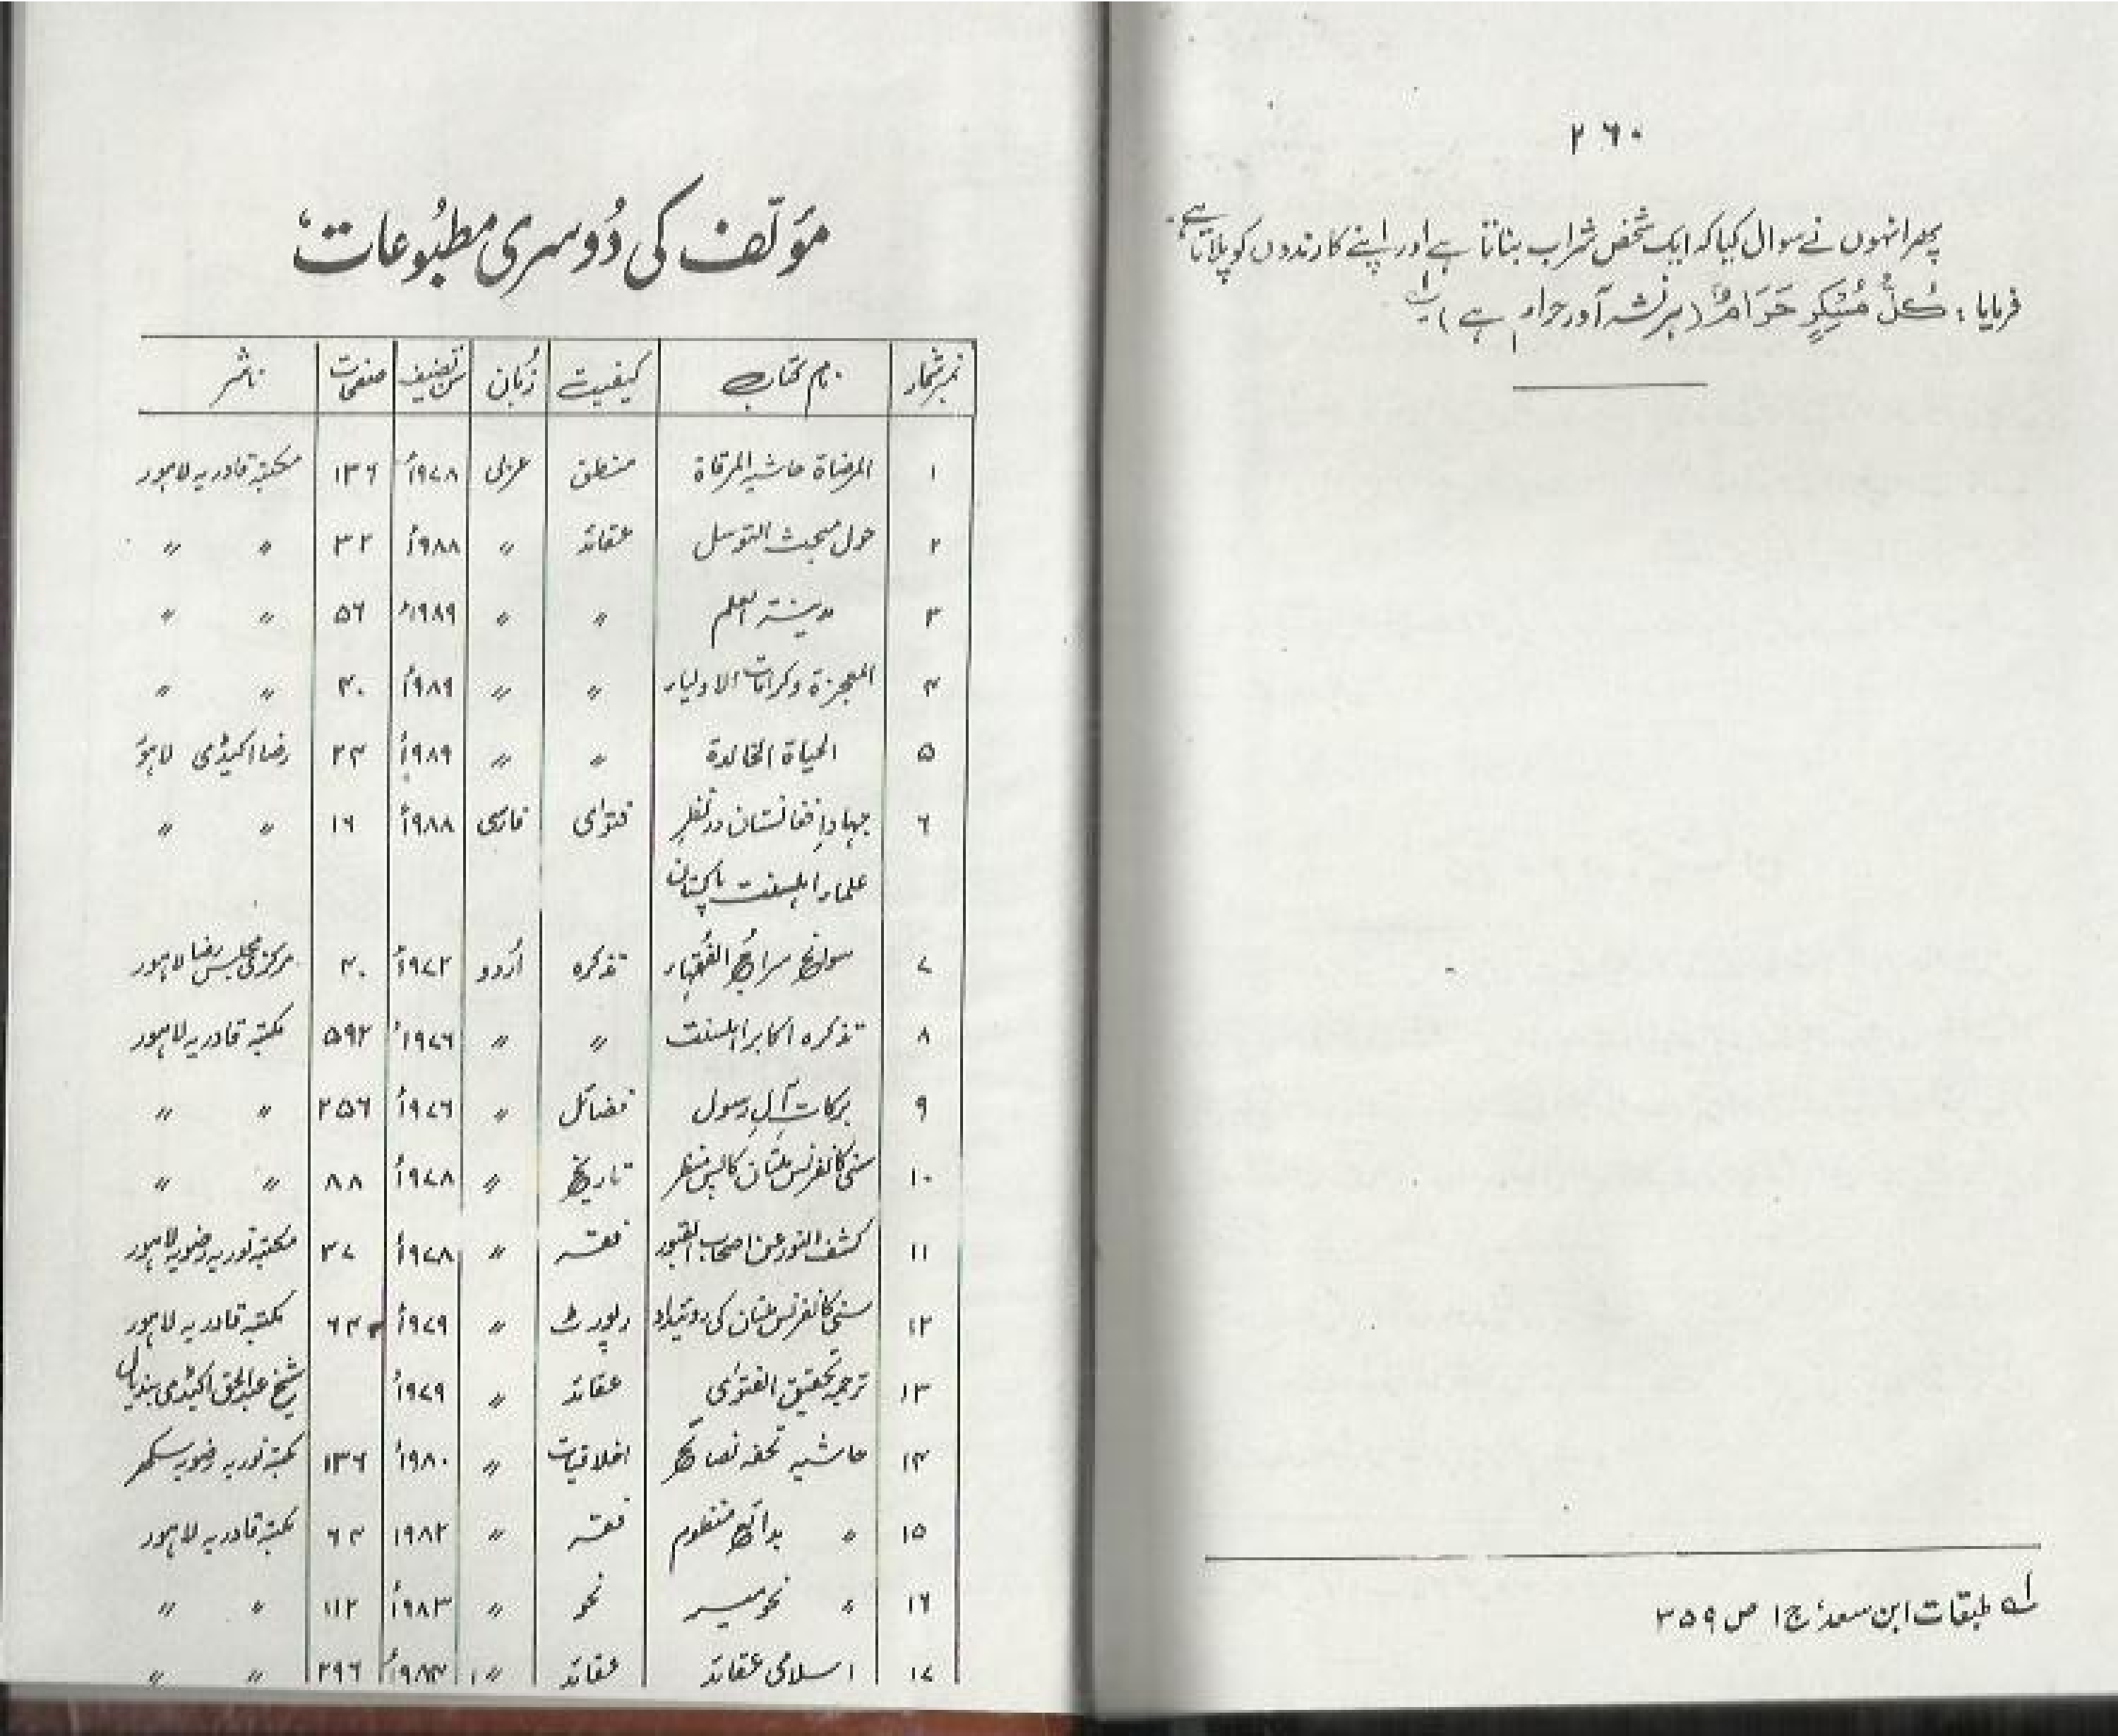 ۲۶۰
پھر انہوں نے سوال کیا کہ ایک شخص شراب بناتا ہے اور اپنے کارندوں کو پلاتا ہے۔
فرمایا: كُلُّ مُسْكِرٍ حَرَامٌ (ہر نشہ آور حرام ہے) لہ
لہ طبقات ابن سعد، ج ۱ ص ۳۵۹
مؤلّف کی دُوسری مطبُوعات،
نمبر شمار نام کتاب کیفیت زبان سن تصنیف صفحات ناشر
۱ المرضاۃ حاشیہ المرقاۃ منطق عربی ۱۹۷۸ء ۱۳۶ مکتبہ قادریہ لاہور
۲ حول مبحث التوسل عقائد 〃 ۱۹۸۸ء ۳۲ 〃 〃
۳ مدینۃ العلم 〃 〃 ۱۹۸۹ء ۵۶ 〃 〃
۴ المعجزۃ وکرامات الاولیاء 〃 〃 ۱۹۸۹ء ۴۰ 〃 〃
۵ الحیاۃ الخالدۃ 〃 〃 ۱۹۸۹ء ۲۴ رضا اکیڈمی لاہور
۶ جہاد افغانستان در نظر فتوٰی فارسی ۱۹۸۸ء ۱۶ 〃 〃
علماء اہلسنت پاکستان
۷ سوانح سراج الفقہاء تذکرہ اُردو ۱۹۷۲ء ۴۰ مرکزی مجلس رضا لاہور
۸ تذکرہ اکابر اہلسنت 〃 〃 ۱۹۷۶ء ۵۹۲ مکتبہ قادریہ لاہور
۹ برکات آلِ رسول فضائل 〃 ۱۹۷۶ء ۲۵۶ 〃 〃
۱۰ سنی کانفرنس ملتان کا پس منظر تاریخ 〃 ۱۹۷۸ء ۸۸ 〃 〃
۱۱ کشف النور عن اصحاب القبور فقہ 〃 ۱۹۷۸ء ۴۷ مکتبہ نوریہ رضویہ لاہور
۱۲ سنی کانفرنس ملتان کی روئیداد رپورٹ 〃 ۱۹۷۹ء ۶۴ مکتبہ قادریہ لاہور
۱۳ ترجمہ تحقیق الفتوٰی عقائد 〃 ۱۹۷۹ء شیخ عبدالحق اکیڈمی بندیال
۱۴ حاشیہ تحفہ نصائح اخلاقیات 〃 ۱۹۸۰ء ۱۳۶ مکتبہ نوریہ رضویہ سکھر
۱۵ 〃 بدائع منظوم فقہ 〃 ۱۹۸۲ ۶۴ مکتبہ قادریہ لاہور
۱۶ 〃 نحو میر نحو 〃 ۱۹۸۳ء ۱۱۲ 〃 〃
۱۷ اسلامی عقائد عقائد 〃 ۱۹۸۳ء ۲۹۶ 〃 〃